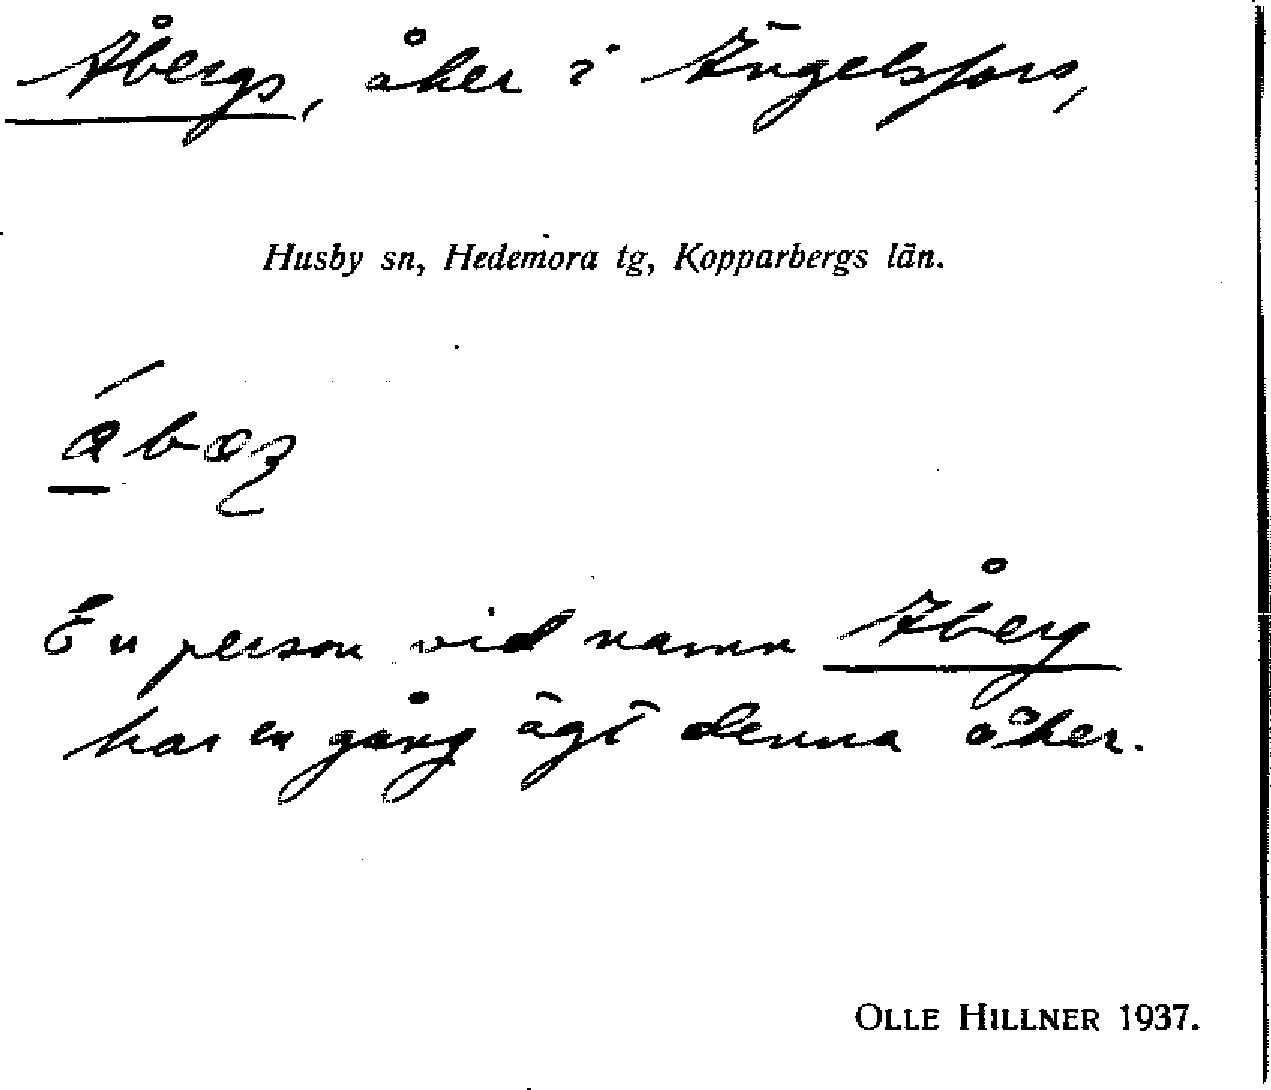 Åbergs, åker i Ängelsfors,
Husby sn, Hedemora tg, Kopparbergs län.
En person vid namn Åberg
har en gång ägt denna åker.
OLLE HILLNER 1937.